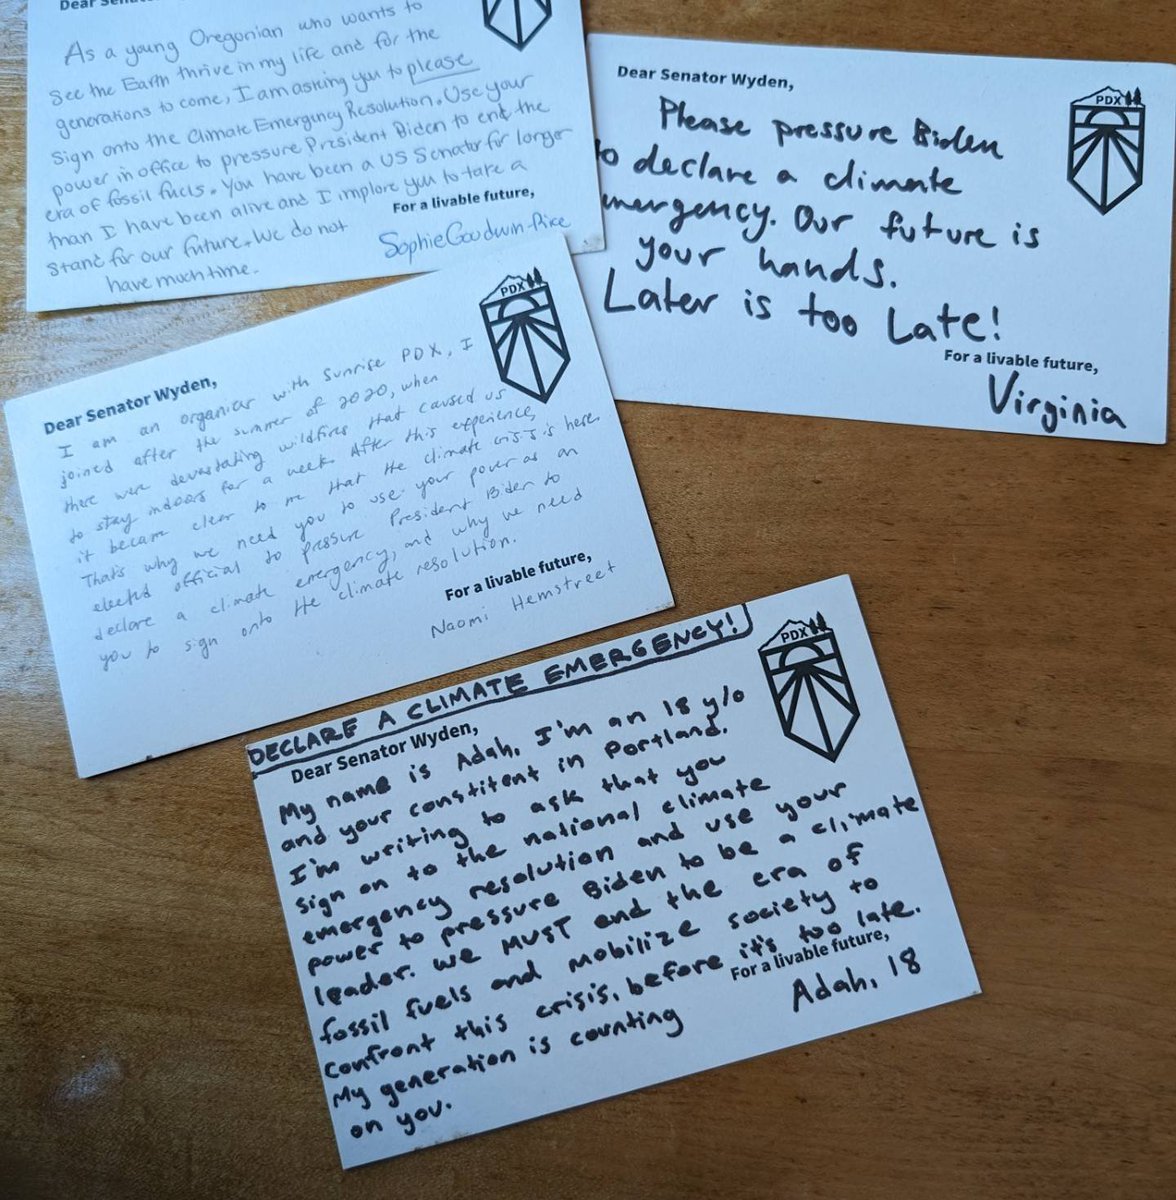 Dear Senator
As a young Oregonian who wants to
see the Earth thrive in my life and for the
generations to come, I am asking you to please
sign onto the Climate Emergency Resolution. Use your
power in office to pressure President Biden to end the
era of fossil fuels. You have been a US Senator for longer
than I have been alive and I implore you to take a
stand for our future. We do not
have much time.
For a livable future,
Sophie Goodwin-Rice
PDX
Dear Senator Wyden,
Please pressure Biden
to declare a climate
emergency. Our future is
your hands.
Later is too late!
For a livable future,
Virginia
PDX
Dear Senator Wyden,
I am an organizer with Sunrise PDX, I
joined after the summer of 2020, when
there were devastating wildfires that caused us
to stay indoors for a week. After this experience,
it became clear to me that the climate crisis is here.
That's why we need you to use your power as an
elected official to pressure President Biden to
declare a climate emergency, and why we need
you to sign onto the climate resolution.
For a livable future,
Naomi Hemstreet
DECLARE A CLIMATE EMERGENCY!
PDX
Dear Senator Wyden,
My name is Adah, I'm an 18 y/o
and your constitent in Portland.
I'm writing to ask that you
sign on to the national climate
emergency resolution and use your
power to pressure Biden to be a climate
leader. We MUST end the era of
fossil fuels and mobilize society to
confront this crisis, before it's too late.
My generation is counting
on you.
For a livable future,
Adah, 18